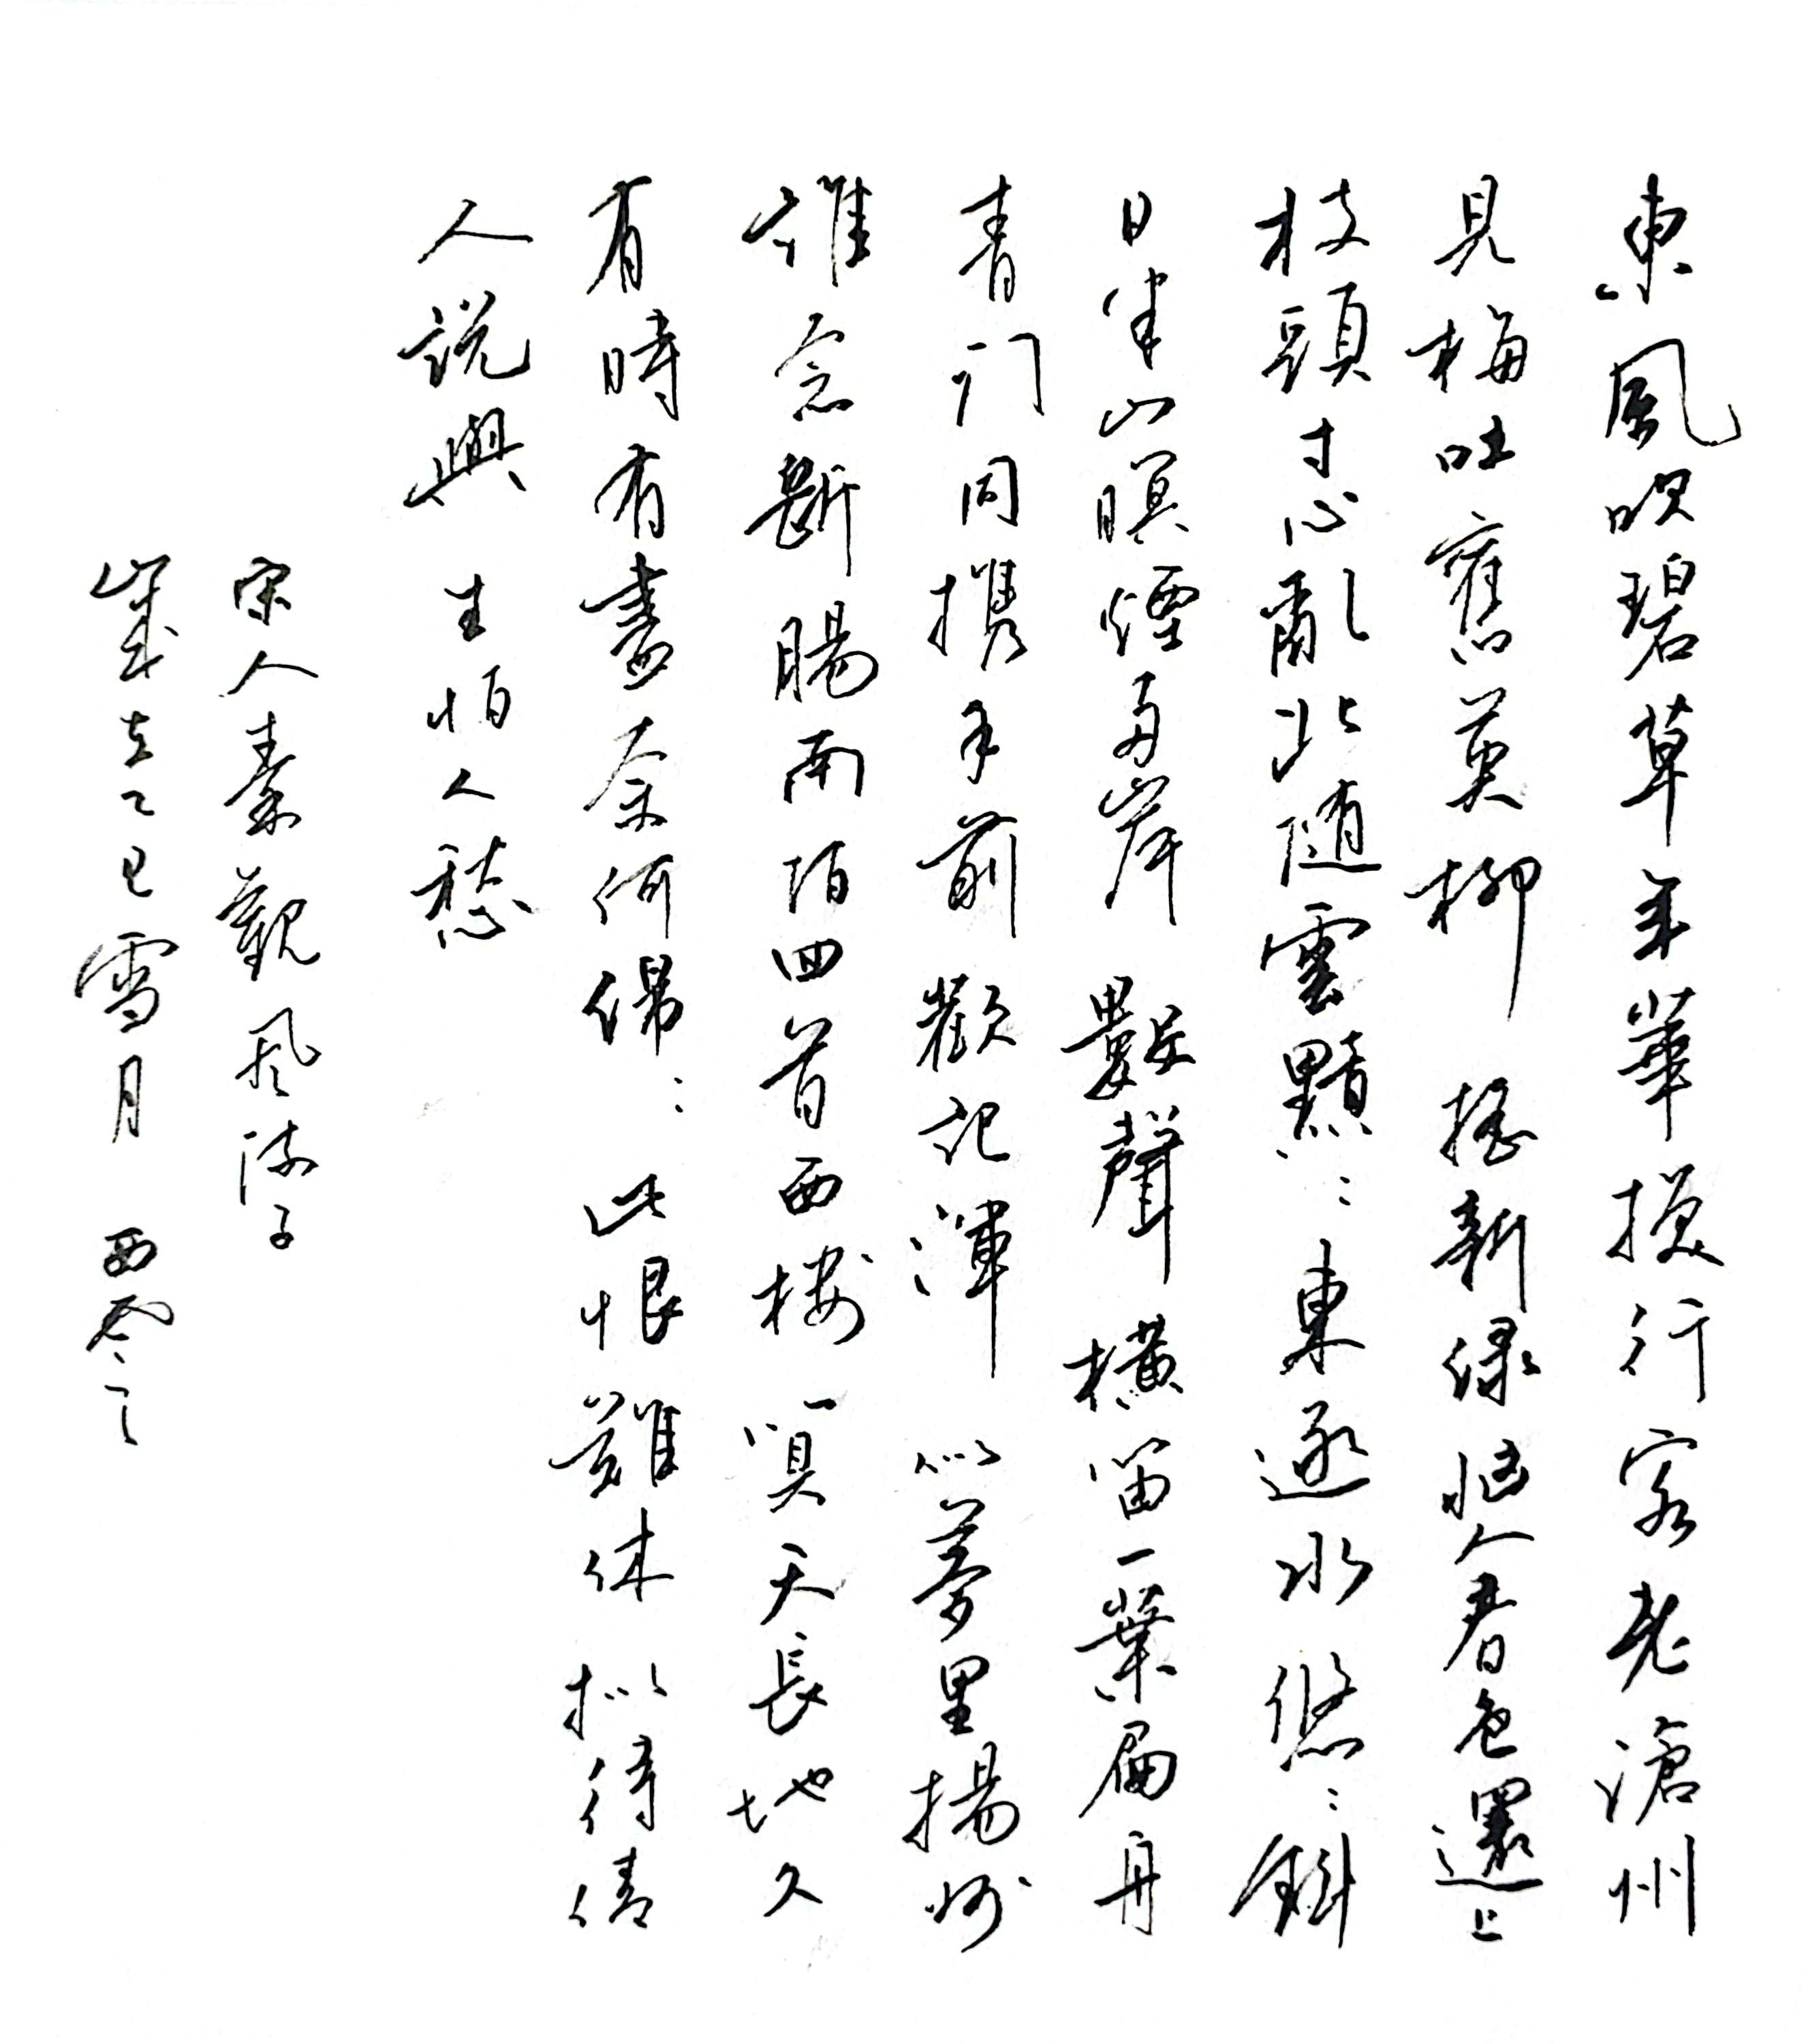 東風吹碧草年華換行客老滄州
見梅吐舊英柳搖新綠惱人春色還上
枝頭寸心亂北隨雲黯〻東逐水悠〻斜
日半山暝煙兩岸數聲橫笛一葉扁舟
青門同攜手前歡記渾似夢里揚州
誰念斷腸南陌回首西樓算天長地久
有時有盡奈何綿〻此恨難休擬待倩
人說與生怕人愁
宋人秦觀風流子
歲在乙巳雪月西